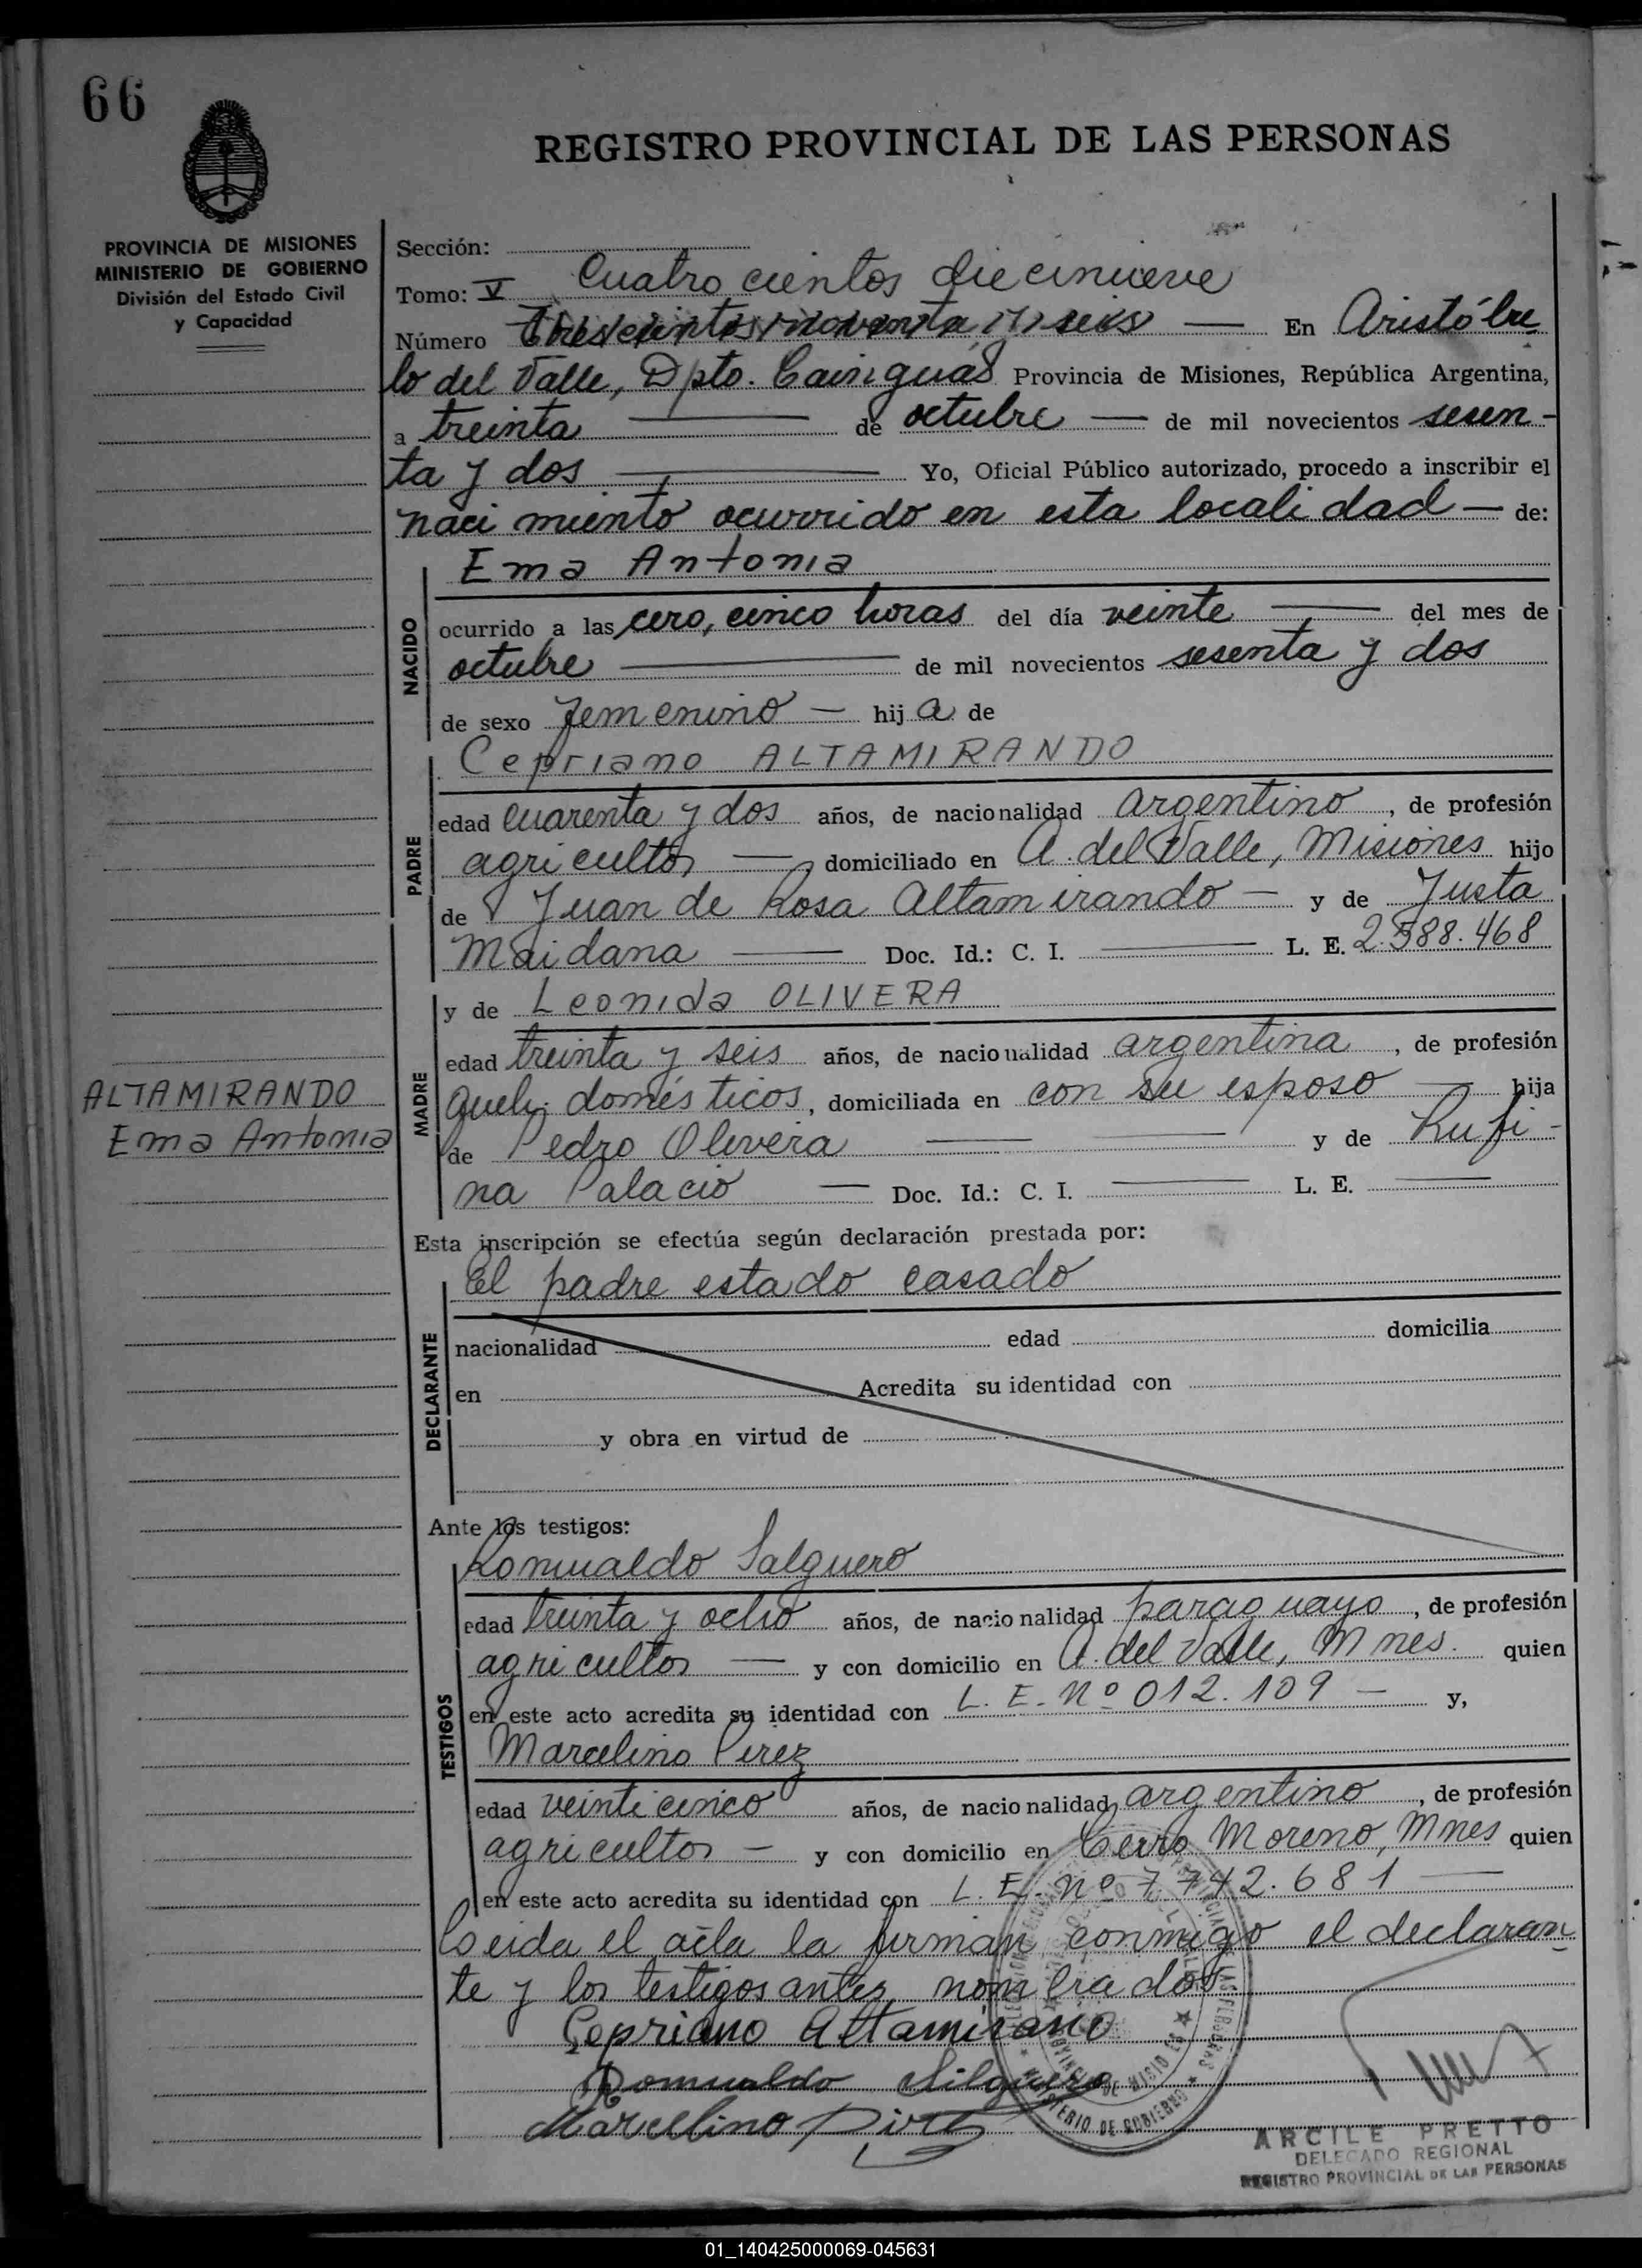 66
REGISTRO PROVINCIAL DE LAS PERSONAS
PROVINCIA DE MISIONES
MINISTERIO DE GOBIERNO
División del Estado Civil
y Capacidad
Sección:
Tomo: V Cuatro cientos diecinueve
Número Trescientos noventa y seis — En Aristóbu
lo del Valle, Dpto. Cainguás Provincia de Misiones, República Argentina,
a treinta — de octubre — de mil novecientos sesen-
ta y dos — Yo, Oficial Público autorizado, procedo a inscribir el
naci miento ocurrido en esta localidad — de:
Ema Antonia
NACIDO
ocurrido a las cero, cinco horas del día veinte — del mes de
octubre — de mil novecientos sesenta y dos
de sexo femenino — hij a de
Cepriano ALTAMIRANDO
PADRE
edad cuarenta y dos años, de nacionalidad argentino, de profesión
agricultor —, domiciliado en A. del Valle, Misiones hijo
de Juan de Rosa Altamirando — y de Justa
Maidana — Doc. Id.: C. I. — L. E. 2.588.468
y de Leonida OLIVERA
MADRE
edad treinta y seis años, de nacionalidad argentina, de profesión
queh. domésticos, domiciliada en con su esposo — hija
de Pedro Olivera — y de Rufi-
na Palacio — Doc. Id.: C. I. — L. E. —
ALTAMIRANDO
Ema Antonia
Esta inscripción se efectúa según declaración prestada por:
El padre estado casado
DECLARANTE
nacionalidad edad domicilia
en Acredita su identidad con
y obra en virtud de
Ante los testigos:
Romualdo Salguero
TESTIGOS
edad treinta y ocho años, de nacionalidad paraguayo, de profesión
agricultor — y con domicilio en A. del Valle, Mnes. quien
en este acto acredita su identidad con L. E. Nº 012.109 — y,
Marcelino Pirez
edad veinticinco años, de nacionalidad argentino, de profesión
agricultor — y con domicilio en Cerro Moreno, Mnes quien
en este acto acredita su identidad con L. E. nº 7.742.681 —
Leida el acta la firman conmigo el declaran
te y los testigos antes nombrados
Cepriano Altamirano
Romualdo Silguero
Marcelino Pirez
MINISTERIO DE GOBIERNO
ARCILE PRETTO
DELEGADO REGIONAL
REGISTRO PROVINCIAL DE LAS PERSONAS
01_140425000069-045631